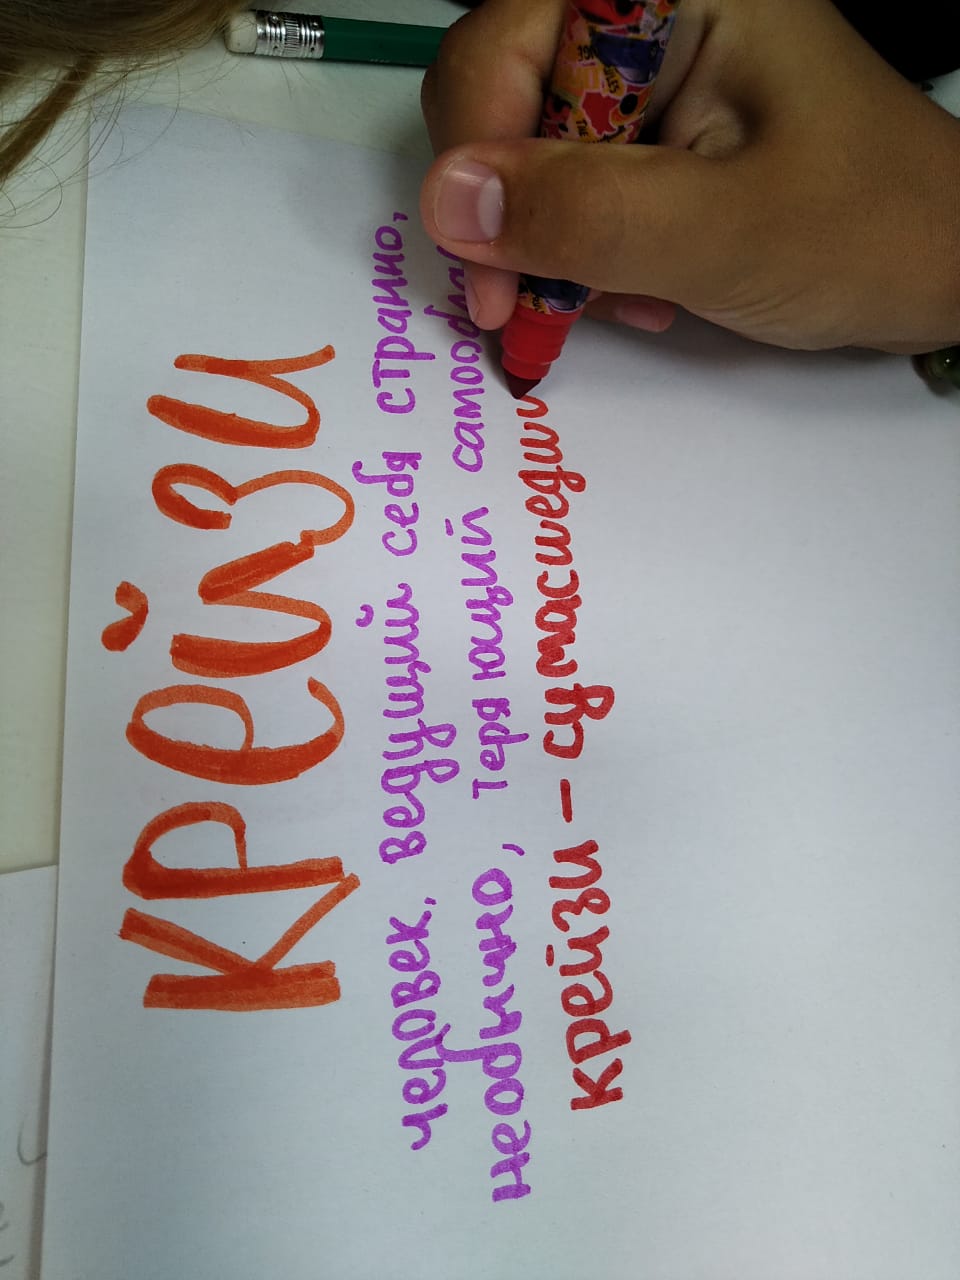 крейзи
человек, ведущий себя странно,
необычно, теряющий самообла
крейзи – сумасшедши